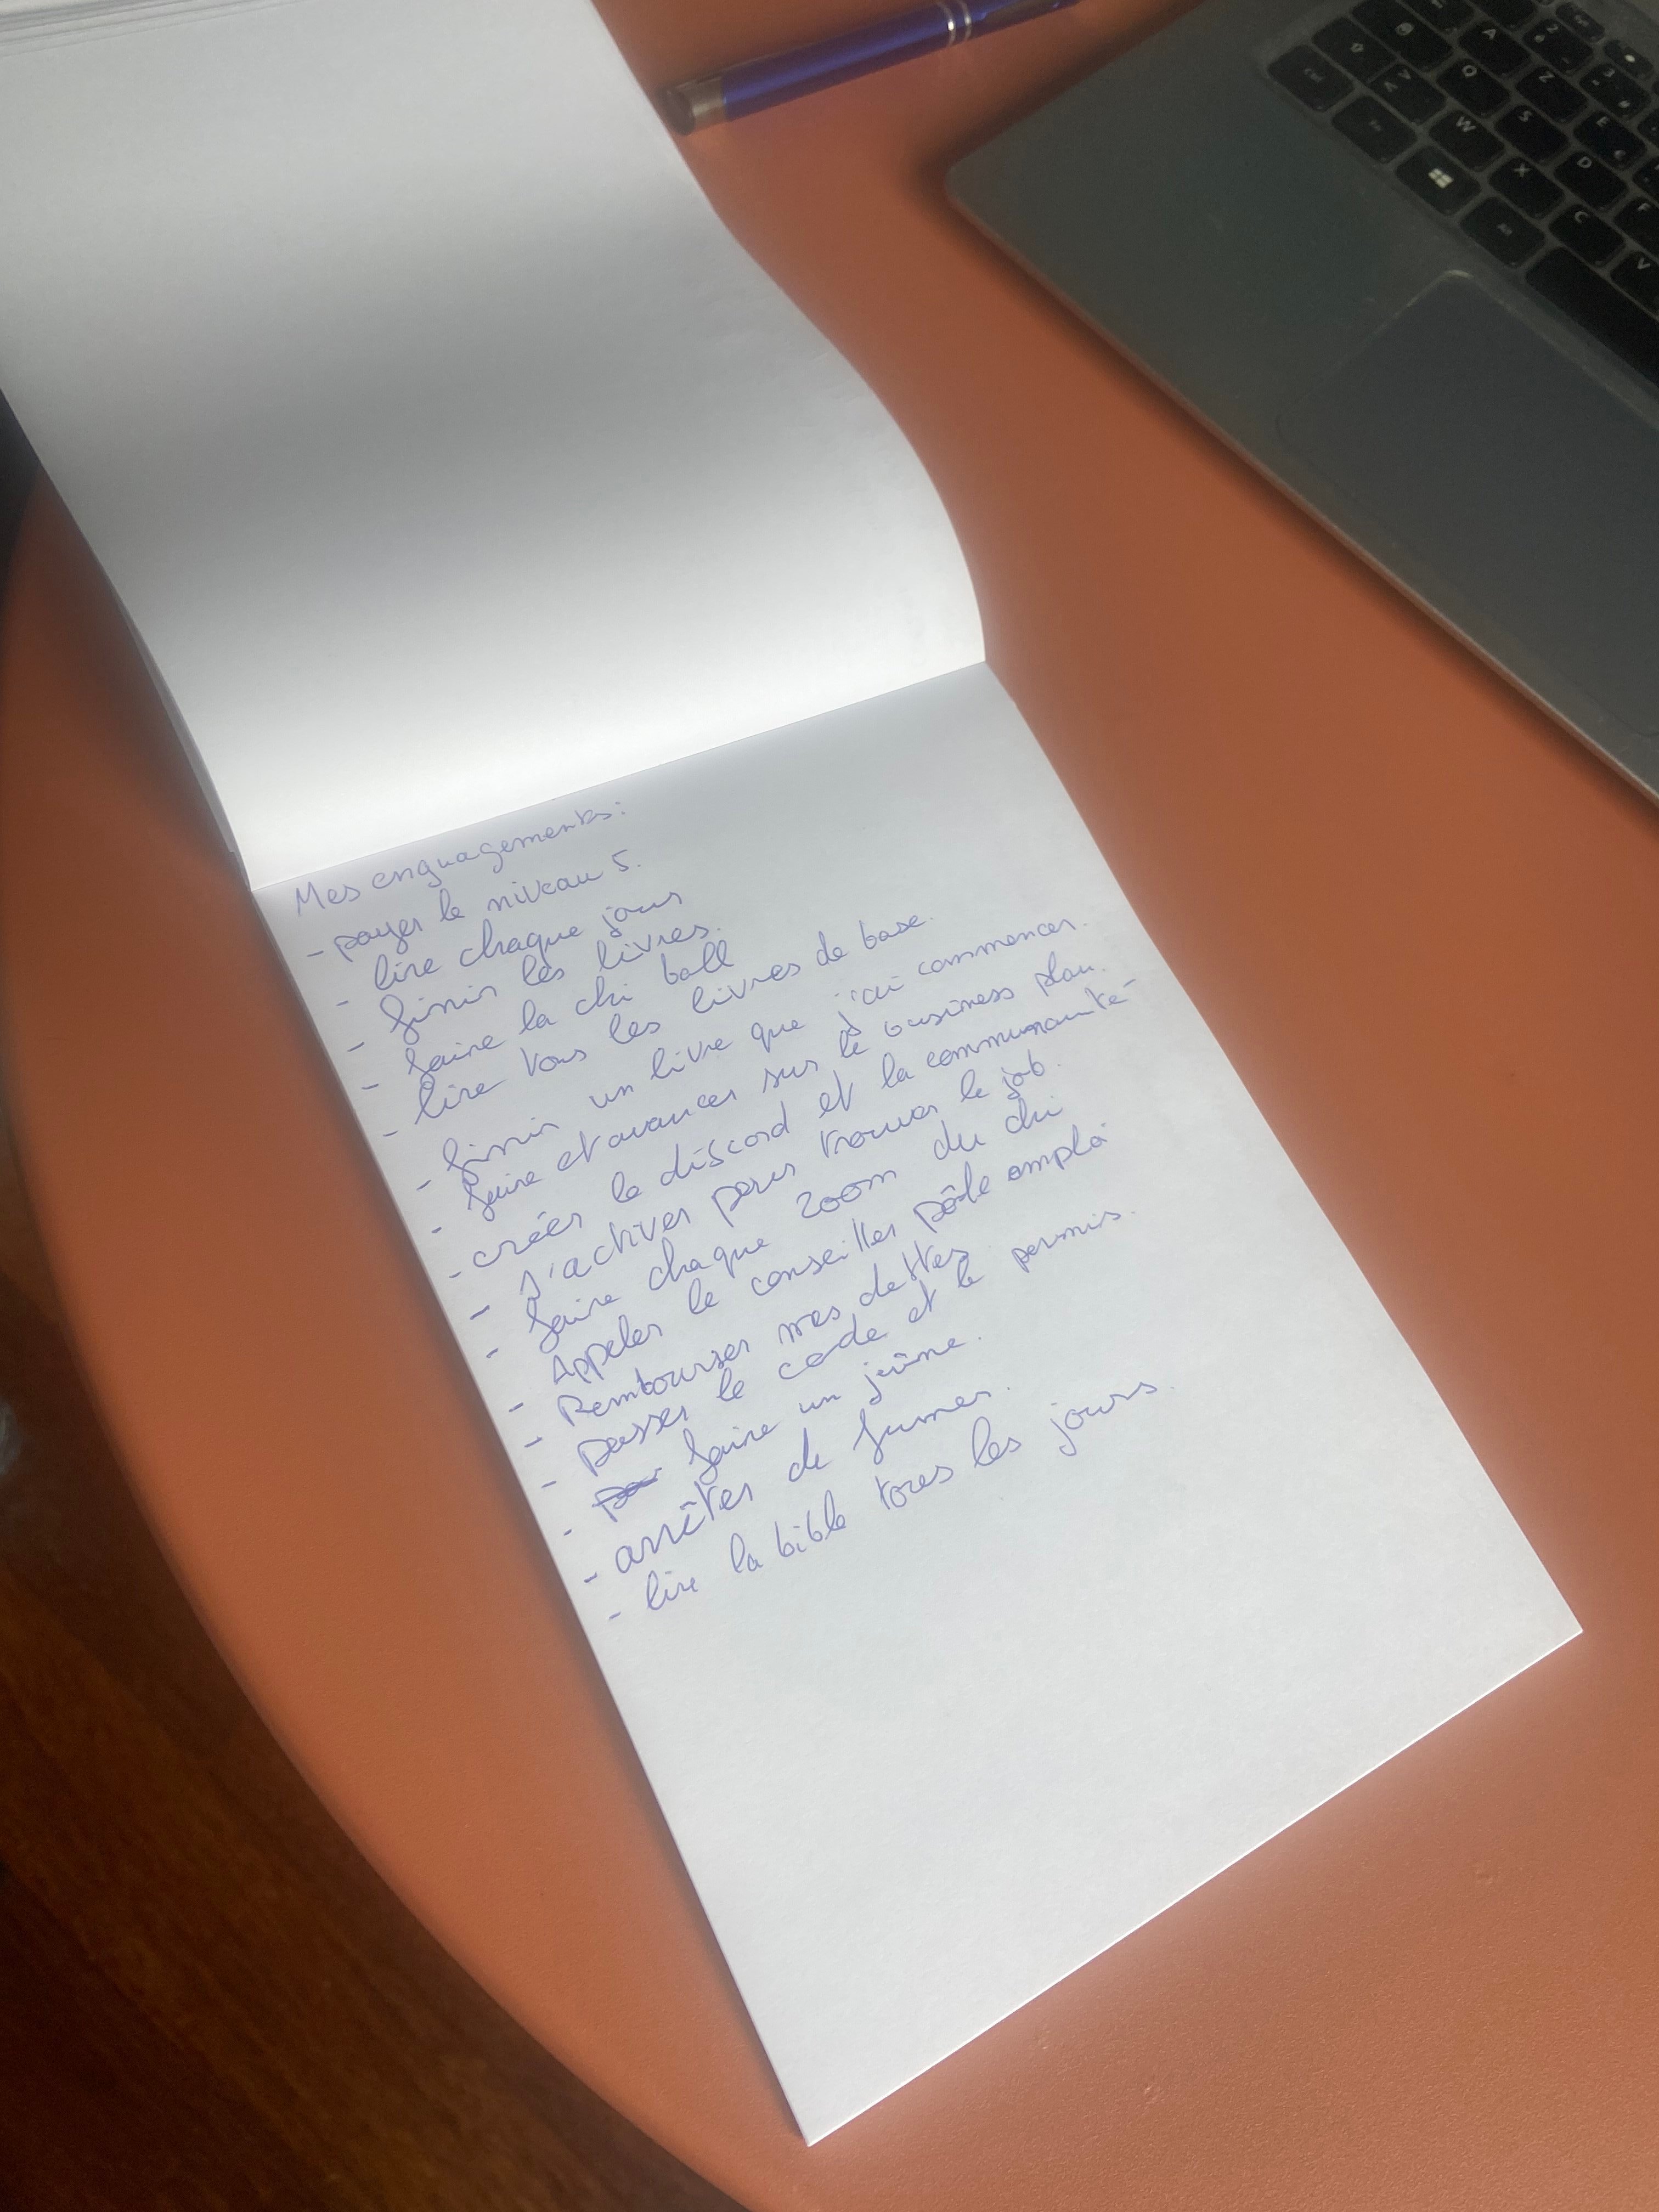 Mes enguagements:
- payer le niveau 5.
- lire chaque jour
- finir les livres.
- faire la chi ball
- lire tous les livres de base.
- finir un livre que j'ai commencer.
- faire et avancer sur le business plan.
- créer le discord et la communauté
- s'activer pour trouver le job.
- faire chaque zoom du chi
- Appeler le conseiller pôle emploi
- Rembourser mes dettes
- passer le code et le permis.
- faire un jeûne.
- arrêter de fumer.
- lire la bible tous les jours.
Ctrl
Fn
Alt
A
Z
Q
S
W
X
E
D
C
F
V